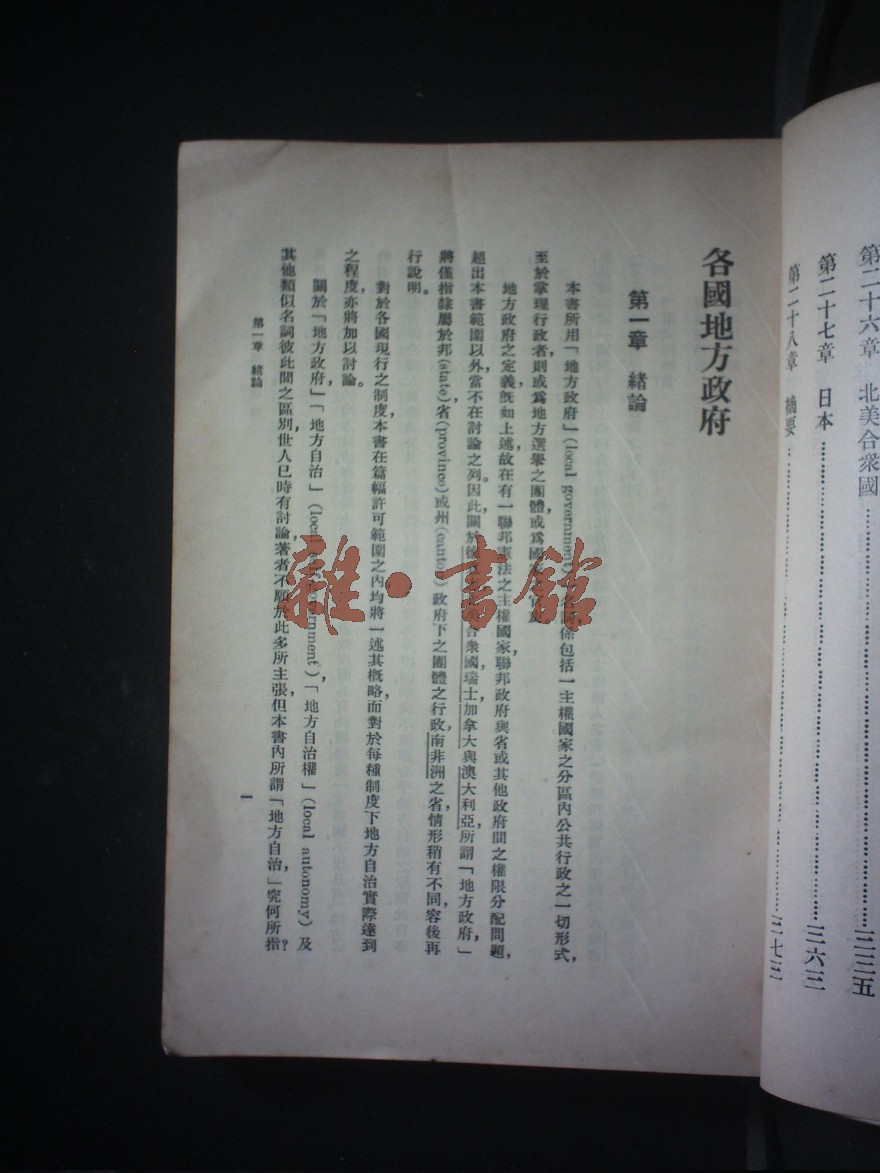 第二十六章 北美合衆國……三三五
第二十七章 日本……三六三
第二十八章 摘要……三七三
各國地方政府
第一章 緒論
本書所用「地方政府」(local government) 係包括一主權國家之分區內公共行政之一切形式，
至於掌理行政者，則或爲地方選舉之團體或爲國
地方政府之定義既如上述，故在有一聯邦憲法之主權國家，聯邦政府與省或其他政府間之權限分配問題，
超出本書範圍以外，當不在討論之列。因此，關於 合衆國，瑞士，加拿大與澳大利亞，所謂「地方政府」
將僅指隸屬於邦(state)省(province)或州(canton)政府下之團體之行政，南非洲之省，情形稍有不同，容後再
行說明。
對於各國現行之制度，本書在篇幅許可範圍之內，均將一述其概略，而對於每種制度下地方自治實際達到
之程度，亦將加以討論。
關於「地方政府」「地方自治」(local self-government)，「地方自治權」(local autonomy) 及
其他類似名詞彼此間之區別，世人已時有討論，著者不願於此多所主張，但本書內所謂「地方自治」，究何所指？
第一章 緒論
一
雜·書館